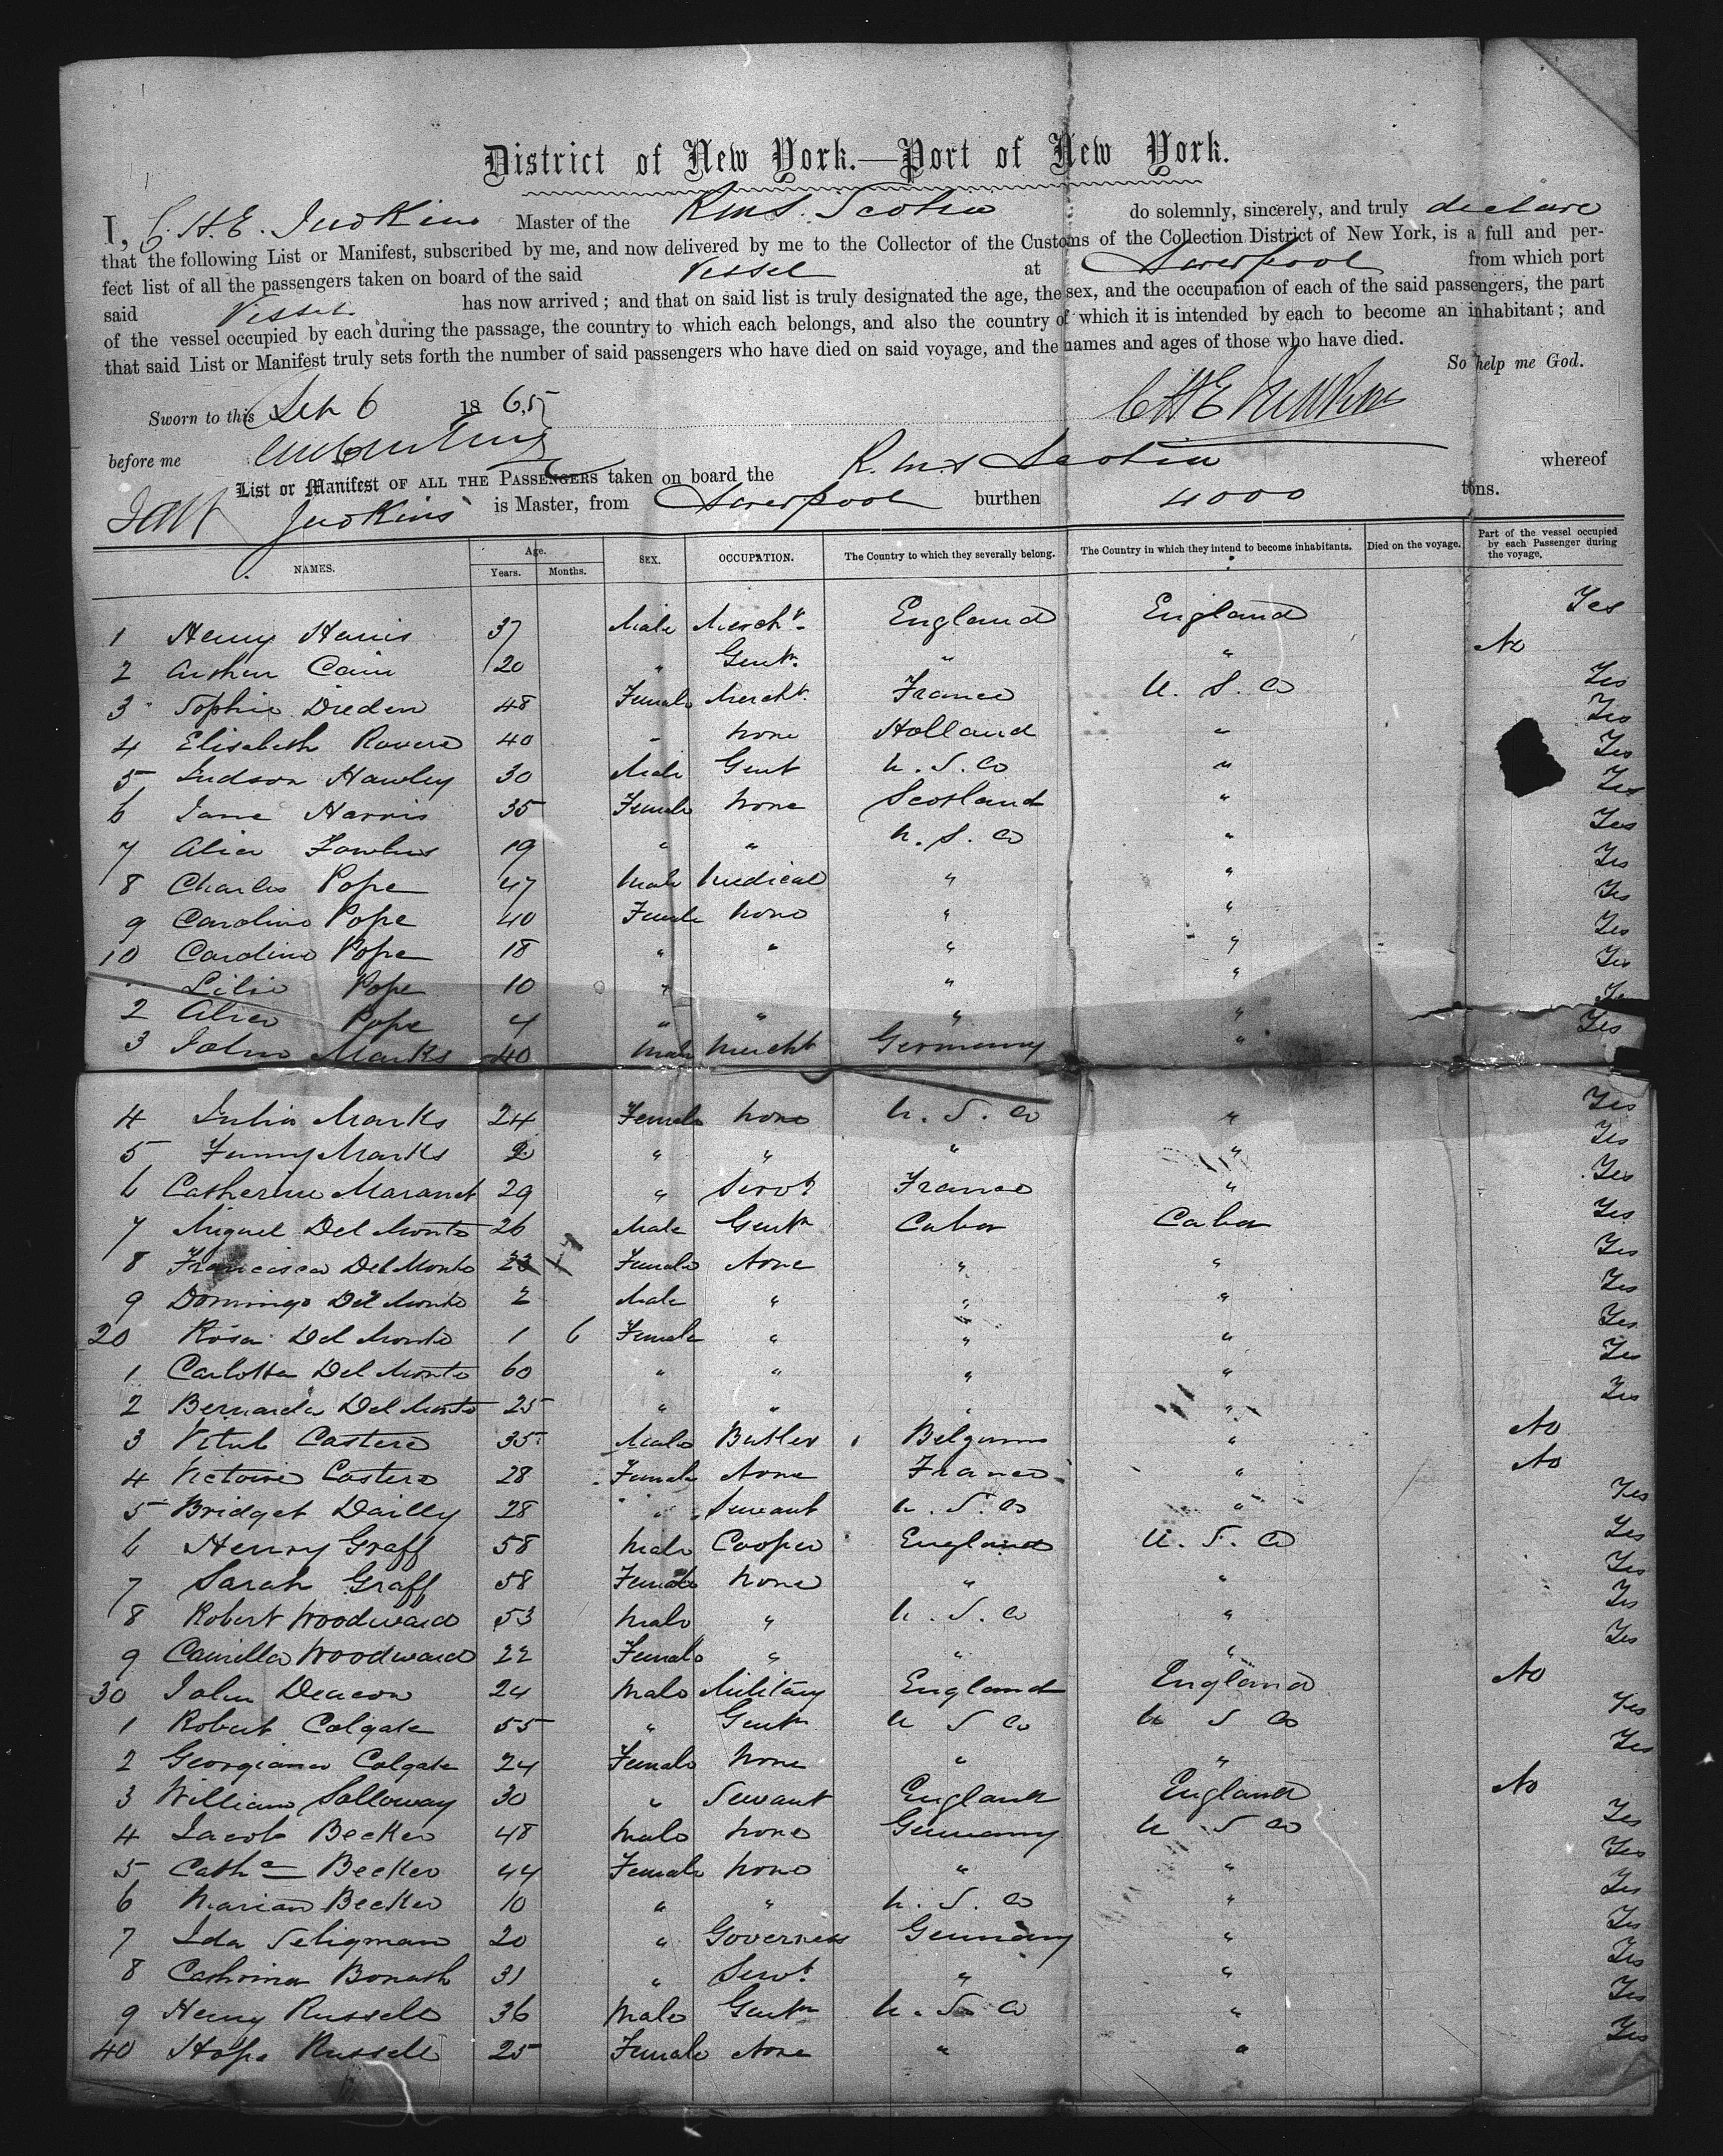 District of New York.—Port of New York.
I, C. H. E. Judkins Master of the RMS. Scotia do solemnly, sincerely, and truly declare
that the following List or Manifest, subscribed by me, and now delivered by me to the Collector of the Customs of the Collection District of New York, is a full and per-
fect list of all the passengers taken on board of the said Vessel at Liverpool from which port
said Vessel has now arrived; and that on said list is truly designated the age, the sex, and the occupation of each of the said passengers, the part
of the vessel occupied by each during the passage, the country to which each belongs, and also the country of which it is intended by each to become an inhabitant; and
that said List or Manifest truly sets forth the number of said passengers who have died on said voyage, and the names and ages of those who have died.
So help me God.
Sworn to this Sep 6 1865 CHE Judkins
before me
List or Manifest OF ALL THE PASSENGERS taken on board the R.M.S Scotia whereof
Judkins is Master, from Liverpool burthen 4000 tons.
NAMES. Age. Years. Months. SEX. OCCUPATION. The Country to which they severally belong. The Country in which they intend to become inhabitants. Died on the voyage. Part of the vessel occupied by each Passenger during the voyage.
1 Henry Harris 37 Male Merch't England England Yes
2 Arthur Cain 20 " Gent. " " No
3 Sophie Dieden 48 Female Mercht France U. S. Co Yes
4 Elisabeth Rovere 40 " None Holland " Yes
5 Judson Hawley 30 Male Gent U. S. Co " Yes
6 Jane Harris 35 Female None Scotland " Yes
7 Alice 19 " " U. S. Co " Yes
8 Charles Pope 47 Male Medical " " Yes
9 Caroline Pope 40 Female None " " Yes
10 Caroline Pope 18 " " " " Yes
Lilie Pope 10 " " " Yes
2 Alice Pope 4 " " " " Yes
3 John Marks 40 Male Mercht Germany " Yes
4 Julia Marks 24 Female None U. S. Co " Yes
5 Fanny Marks 2 " " " " Yes
6 Catherine Maranet 29 " Servt France " Yes
7 Miguel Del Monte 26 Male Gentn Cuba Cuba Yes
8 Francisca Del Monte 23 Female None " " Yes
9 Domingo Del Monte 2 Male " " " Yes
20 Rosa Del Monte 1 6 Female " " " Yes
1 Carlotta Del Monte 60 " " " " Yes
2 Bernarda Del Monte 25 " " " " Yes
3 Castero 35 Male Butler Belgium " No
4 Victoire Castero 28 Female None France " No
5 Bridget Dailly 28 " Servant U. S. Co " Yes
6 Henry Graff 58 Male Cooper England U. S. Co Yes
7 Sarah Graff 58 Female None " " Yes
8 Robert Woodward 53 Male " U. S. Co " Yes
9 Camilla Woodward 22 Female " " " Yes
30 John Deacon 24 Male Military England England No
1 Robert Colgate 55 " Gentn U S Co U S Co Yes
2 Georgiana Colgate 24 Female None " " Yes
3 William Solloway 30 " Servant England England No
4 Jacob Becker 48 Male None Germany U S Co Yes
5 Cathe Becker 44 Female None " " Yes
6 Marian Becker 10 " " U. S. Co " Yes
7 Ida Seligman 20 " Governess Germany " Yes
8 Cathrina Bonath 31 " Servt " " Yes
9 Henry Russell 36 Male Gentn U. S. Co " Yes
40 Hope Russell 25 Female None " " Yes